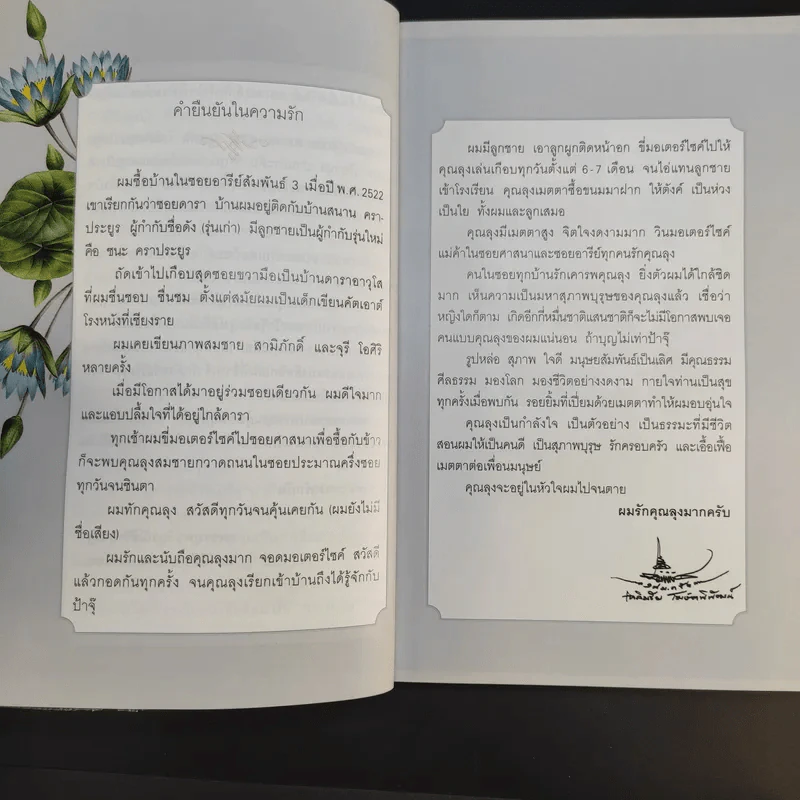 คำยืนยันในความรัก
ผมซื้อบ้านในซอยอารีย์สัมพันธ์ 3 เมื่อปี พ.ศ. 2522
เขาเรียกกันว่าซอยดารา บ้านผมอยู่ติดกับบ้านสนาน ครา-
ประยูร ผู้กำกับชื่อดัง (รุ่นเก่า) มีลูกชายเป็นผู้กำกับรุ่นใหม่
คือ ชนะ คราประยูร
ถัดเข้าไปเกือบสุดซอยขวามือเป็นบ้านดาราอาวุโส
ที่ผมชื่นชอบ ชื่นชม ตั้งแต่สมัยผมเป็นเด็กเขียนคัตเอาต์
โรงหนังที่เชียงราย
ผมเคยเขียนภาพสมชาย สามิภักดิ์ และจุรี โอศิริ
หลายครั้ง
เมื่อมีโอกาสได้มาอยู่ร่วมซอยเดียวกัน ผมดีใจมาก
และแอบปลื้มใจที่ได้อยู่ใกล้ดารา
ทุกเช้าผมขี่มอเตอร์ไซค์ไปซอยศาสนาเพื่อซื้อกับข้าว
ก็จะพบคุณลุงสมชายกวาดถนนในซอยประมาณครึ่งซอย
ทุกวันจนชินตา
ผมทักคุณลุง สวัสดีทุกวันจนคุ้นเคยกัน (ผมยังไม่มี
ชื่อเสียง)
ผมรักและนับถือคุณลุงมาก จอดมอเตอร์ไซค์ สวัสดี
แล้วกอดกันทุกครั้ง จนคุณลุงเรียกเข้าบ้านถึงได้รู้จักกับ
ป้าจุ๊
ผมมีลูกชาย เอาลูกผูกติดหน้าอก ขี่มอเตอร์ไซค์ไปให้
คุณลุงเล่นเกือบทุกวันตั้งแต่ 6-7 เดือน จนไอ่แทนลูกชาย
เข้าโรงเรียน คุณลุงเมตตาซื้อขนมมาฝาก ให้ตังค์ เป็นห่วง
เป็นใย ทั้งผมและลูกเสมอ
คุณลุงมีเมตตาสูง จิตใจงดงามมาก วินมอเตอร์ไซค์
แม่ค้าในซอยศาสนาและซอยอารีย์ทุกคนรักคุณลุง
คนในซอยทุกบ้านรักเคารพคุณลุง ยิ่งตัวผมได้ใกล้ชิด
มาก เห็นความเป็นมหาสุภาพบุรุษของคุณลุงแล้ว เชื่อว่า
หญิงใดก็ตาม เกิดอีกกี่หมื่นชาติแสนชาติก็จะไม่มีโอกาสพบเจอ
คนแบบคุณลุงของผมแน่นอน ถ้าบุญไม่เท่าป้าจุ๊
รูปหล่อ สุภาพ ใจดี มนุษยสัมพันธ์เป็นเลิศ มีคุณธรรม
ศีลธรรม มองโลก มองชีวิตอย่างงดงาม กายใจท่านเป็นสุข
ทุกครั้งเมื่อพบกัน รอยยิ้มที่เปี่ยมด้วยเมตตาทำให้ผมอบอุ่นใจ
คุณลุงเป็นกำลังใจ เป็นตัวอย่าง เป็นธรรมะที่มีชีวิต
สอนผมให้เป็นคนดี เป็นสุภาพบุรุษ รักครอบครัว และเอื้อเฟื้อ
เมตตาต่อเพื่อนมนุษย์
คุณลุงจะอยู่ในหัวใจผมไปจนตาย
ผมรักคุณลุงมากครับ
เฉลิมชัย โฆษิตพิพัฒน์